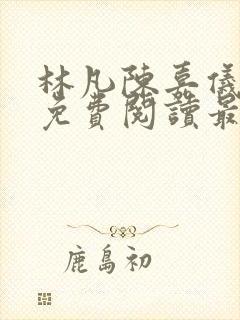 林凡陳嘉儀
免費閱讀最
鹿島初